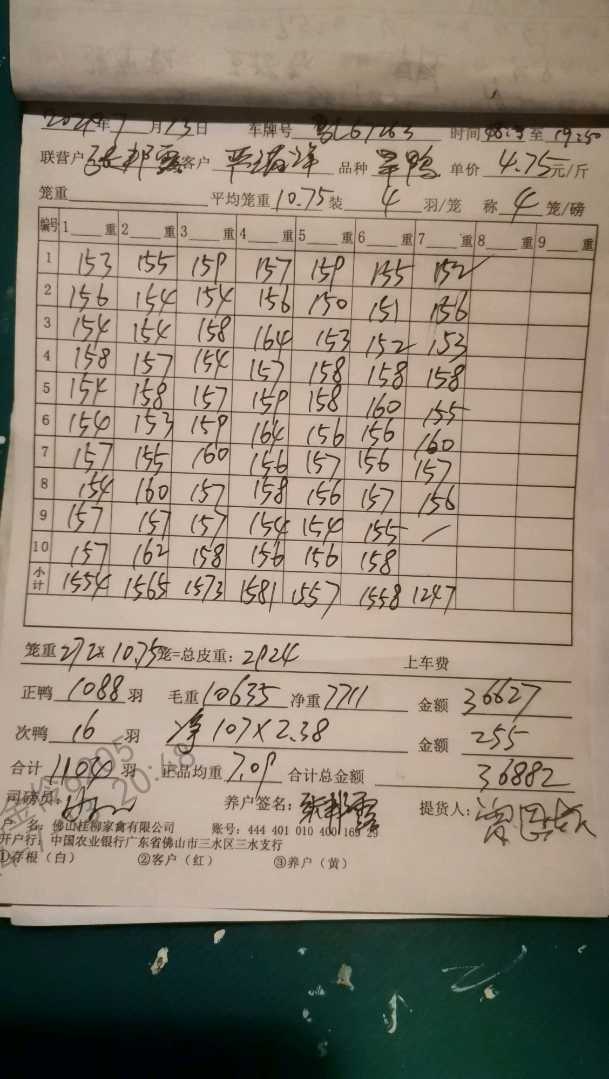 2024年 月13日 车牌号 时间 至 19:50
联营户 张邦露 客户 严海洋 品种 旱鸭 单价 4.75元/斤
笼重 平均笼重10.75装 4 羽/笼 称 4 笼/磅
编号 1 重 2 重 3 重 4 重 5 重 6 重 7 重 8 重 9 重
1 153 155 159 157 159 155 152
2 156 154 154 156 150 151 156
3 154 154 158 164 153 152 153
4 158 157 154 157 158 158 158
5 154 158 157 159 158 160 155
6 154 153 159 164 156 156 160
7 157 155 160 156 157 156 157
8 154 160 157 158 156 157 156
9 157 157 157 154 154 155 /
10 157 162 158 156 156 158
小计 1554 1565 1573 1581 1557 1558 1247
笼重272×10.75笼=总皮重:2924 上车费
正鸭 1088 羽 毛重10635 净重7711 金额 36627
次鸭 16 羽 净107×2.38 金额 255
合计 羽 正品均重 7.09 合计总金额 36882
司磅员: 养户签名:张邦露 提货人:
户 名:佛山桂柳家禽有限公司 账号:444 401 010 400 169 29
开户行:中国农业银行广东省佛山市三水区三水支行
①存根(白) ②客户(红) ③养户(黄)
20:48